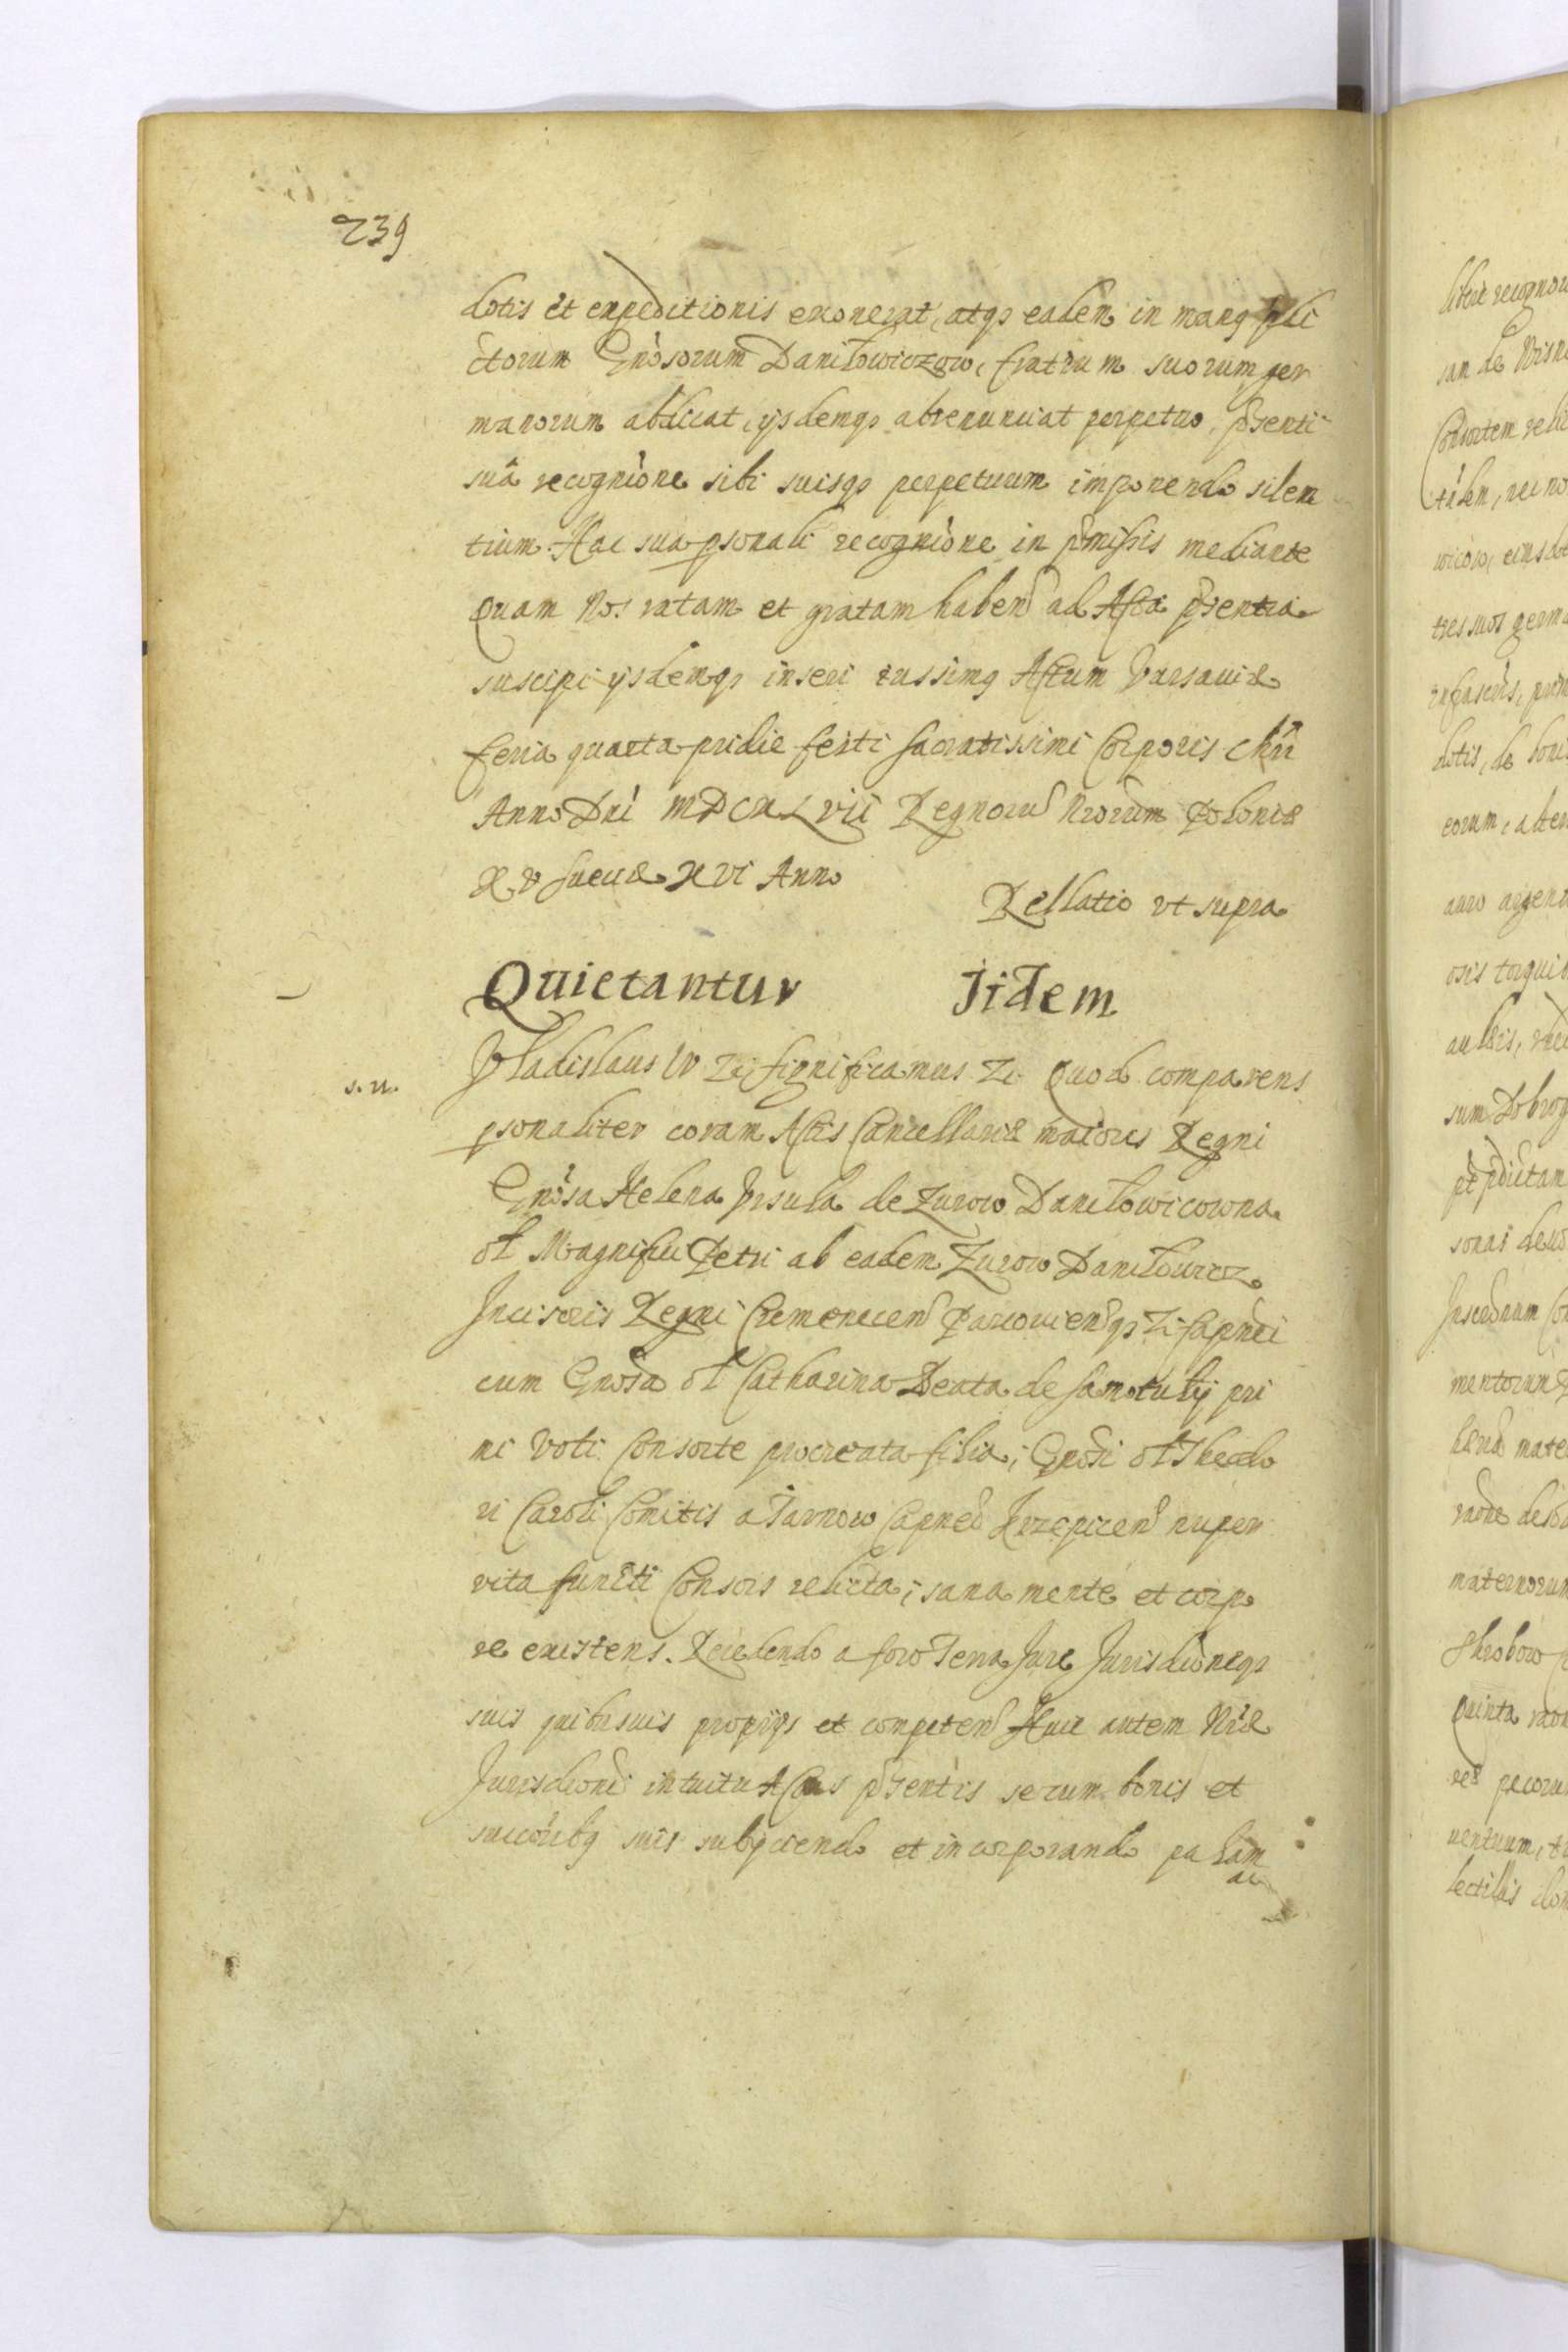 239
dotis et expeditionis exonerat, atqs eadem in manq
ctorum Gnosorum Daniłowiczow, fratrum suorum ger
manorum abdicat, ijsdemqs abrenunciat perpetuo, psenti
suâ recognione sibi suisqs perpetuum imponendo silen
tium. Hac sua psonali recognione in pmissis mediante
Quam Nos ratam et gratam haben ad Acta psentia
suscipi ijsdemqs inseri iussimq Actum Varsaviæ
feria quarta pridie festi Sacratissimi Corporis Chri
Anno Dni MDCXLVII Regnoru Nrorum Poloniæ
XV Sueciæ XVI Anno
Rellatio vt supra
Quietantur Jidem
s. n. Vladislaus IV Zc. significamus Zc. Quod comparens
psonaliter coram Actis Cancellariæ maioris Regni
Gnosa Helena Vrsula de Zurow Daniłowicowna
ol Magnifici Petri ab eadem Zurow Daniłowicz
Incisoris Regni Cremenecen Parcouienqs Zc Capnei
cum Gnosa ol Catharina Beata de Samotuly pri
mi Voti Consorte procreata filia, Gnosi ol Theodo
ri Caroli Comitis a Tarnow Capnei Krzepicen nuper
vita functi Consors relicta, sana mente et corpo
re existens. Recedendo a foro Terra Jure Jurisdioneqs
suis quibusuis proprijs et competen Huic autem Nræ
Jurisdioni intuitu Actus psentis se cum bonis et
succoribq suis subyciendo et incorporando palam
ac